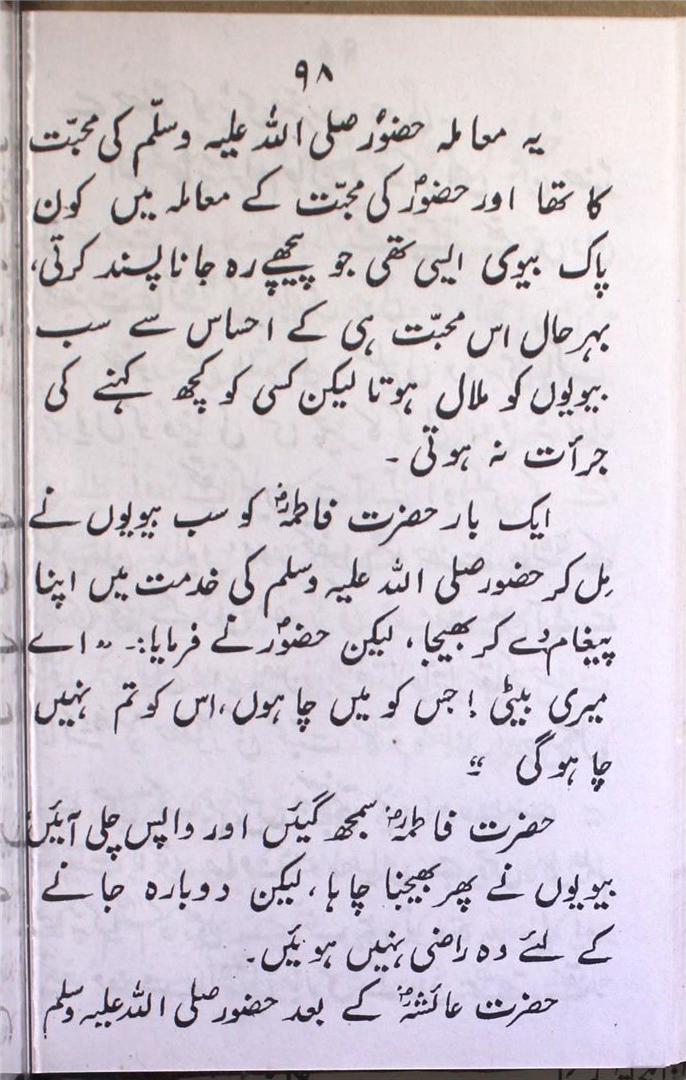 ۹۸
یہ معاملہ حضورؐ صلی اللہ علیہ وسلّم کی محبّت
کا تھا اور حضورؐ کی محبّت کے معاملہ میں کون
پاک بیوی ایسی تھی جو پیچھے رہ جانا پسند کرتی،
بہرحال اس محبّت ہی کے احساس سے سب
بیویوں کو ملال ہوتا لیکن کسی کو کچھ کہنے کی
جرأت نہ ہوتی ۔
ایک بار حضرت فاطمہؓ کو سب بیویوں نے
مِل کر حضور صلی اللہ علیہ وسلم کی خدمت میں اپنا
پیغام دے کر بھیجا، لیکن حضورؐ نے فرمایا:۔ "اے
میری بیٹی! جس کو میں چاہوں، اس کو تم نہیں
چاہوگی "
حضرت فاطمہؓ سمجھ گئیں اور واپس چلی آئیں
بیویوں نے پھر بھیجنا چاہا، لیکن دوبارہ جانے
کے لئے وہ راضی نہیں ہوئیں۔
حضرت عائشہؓ کے بعد حضور صلی اللہ علیہ وسلم